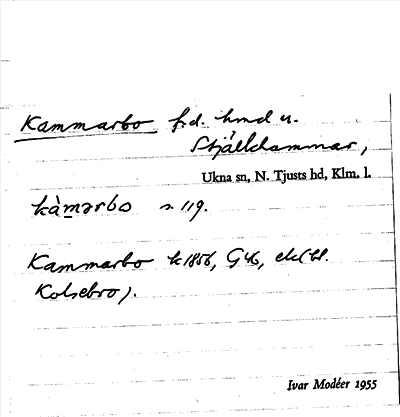 Kammarbo f.d. hmd u.
Stjälkhammar,
Ukna sn, N. Tjusts hd, Klm. l.
kàmarbo n 119.
Kammarbo k 1856, Gk, ek(bl.
Kolsebro).
Ivar Modéer 1955